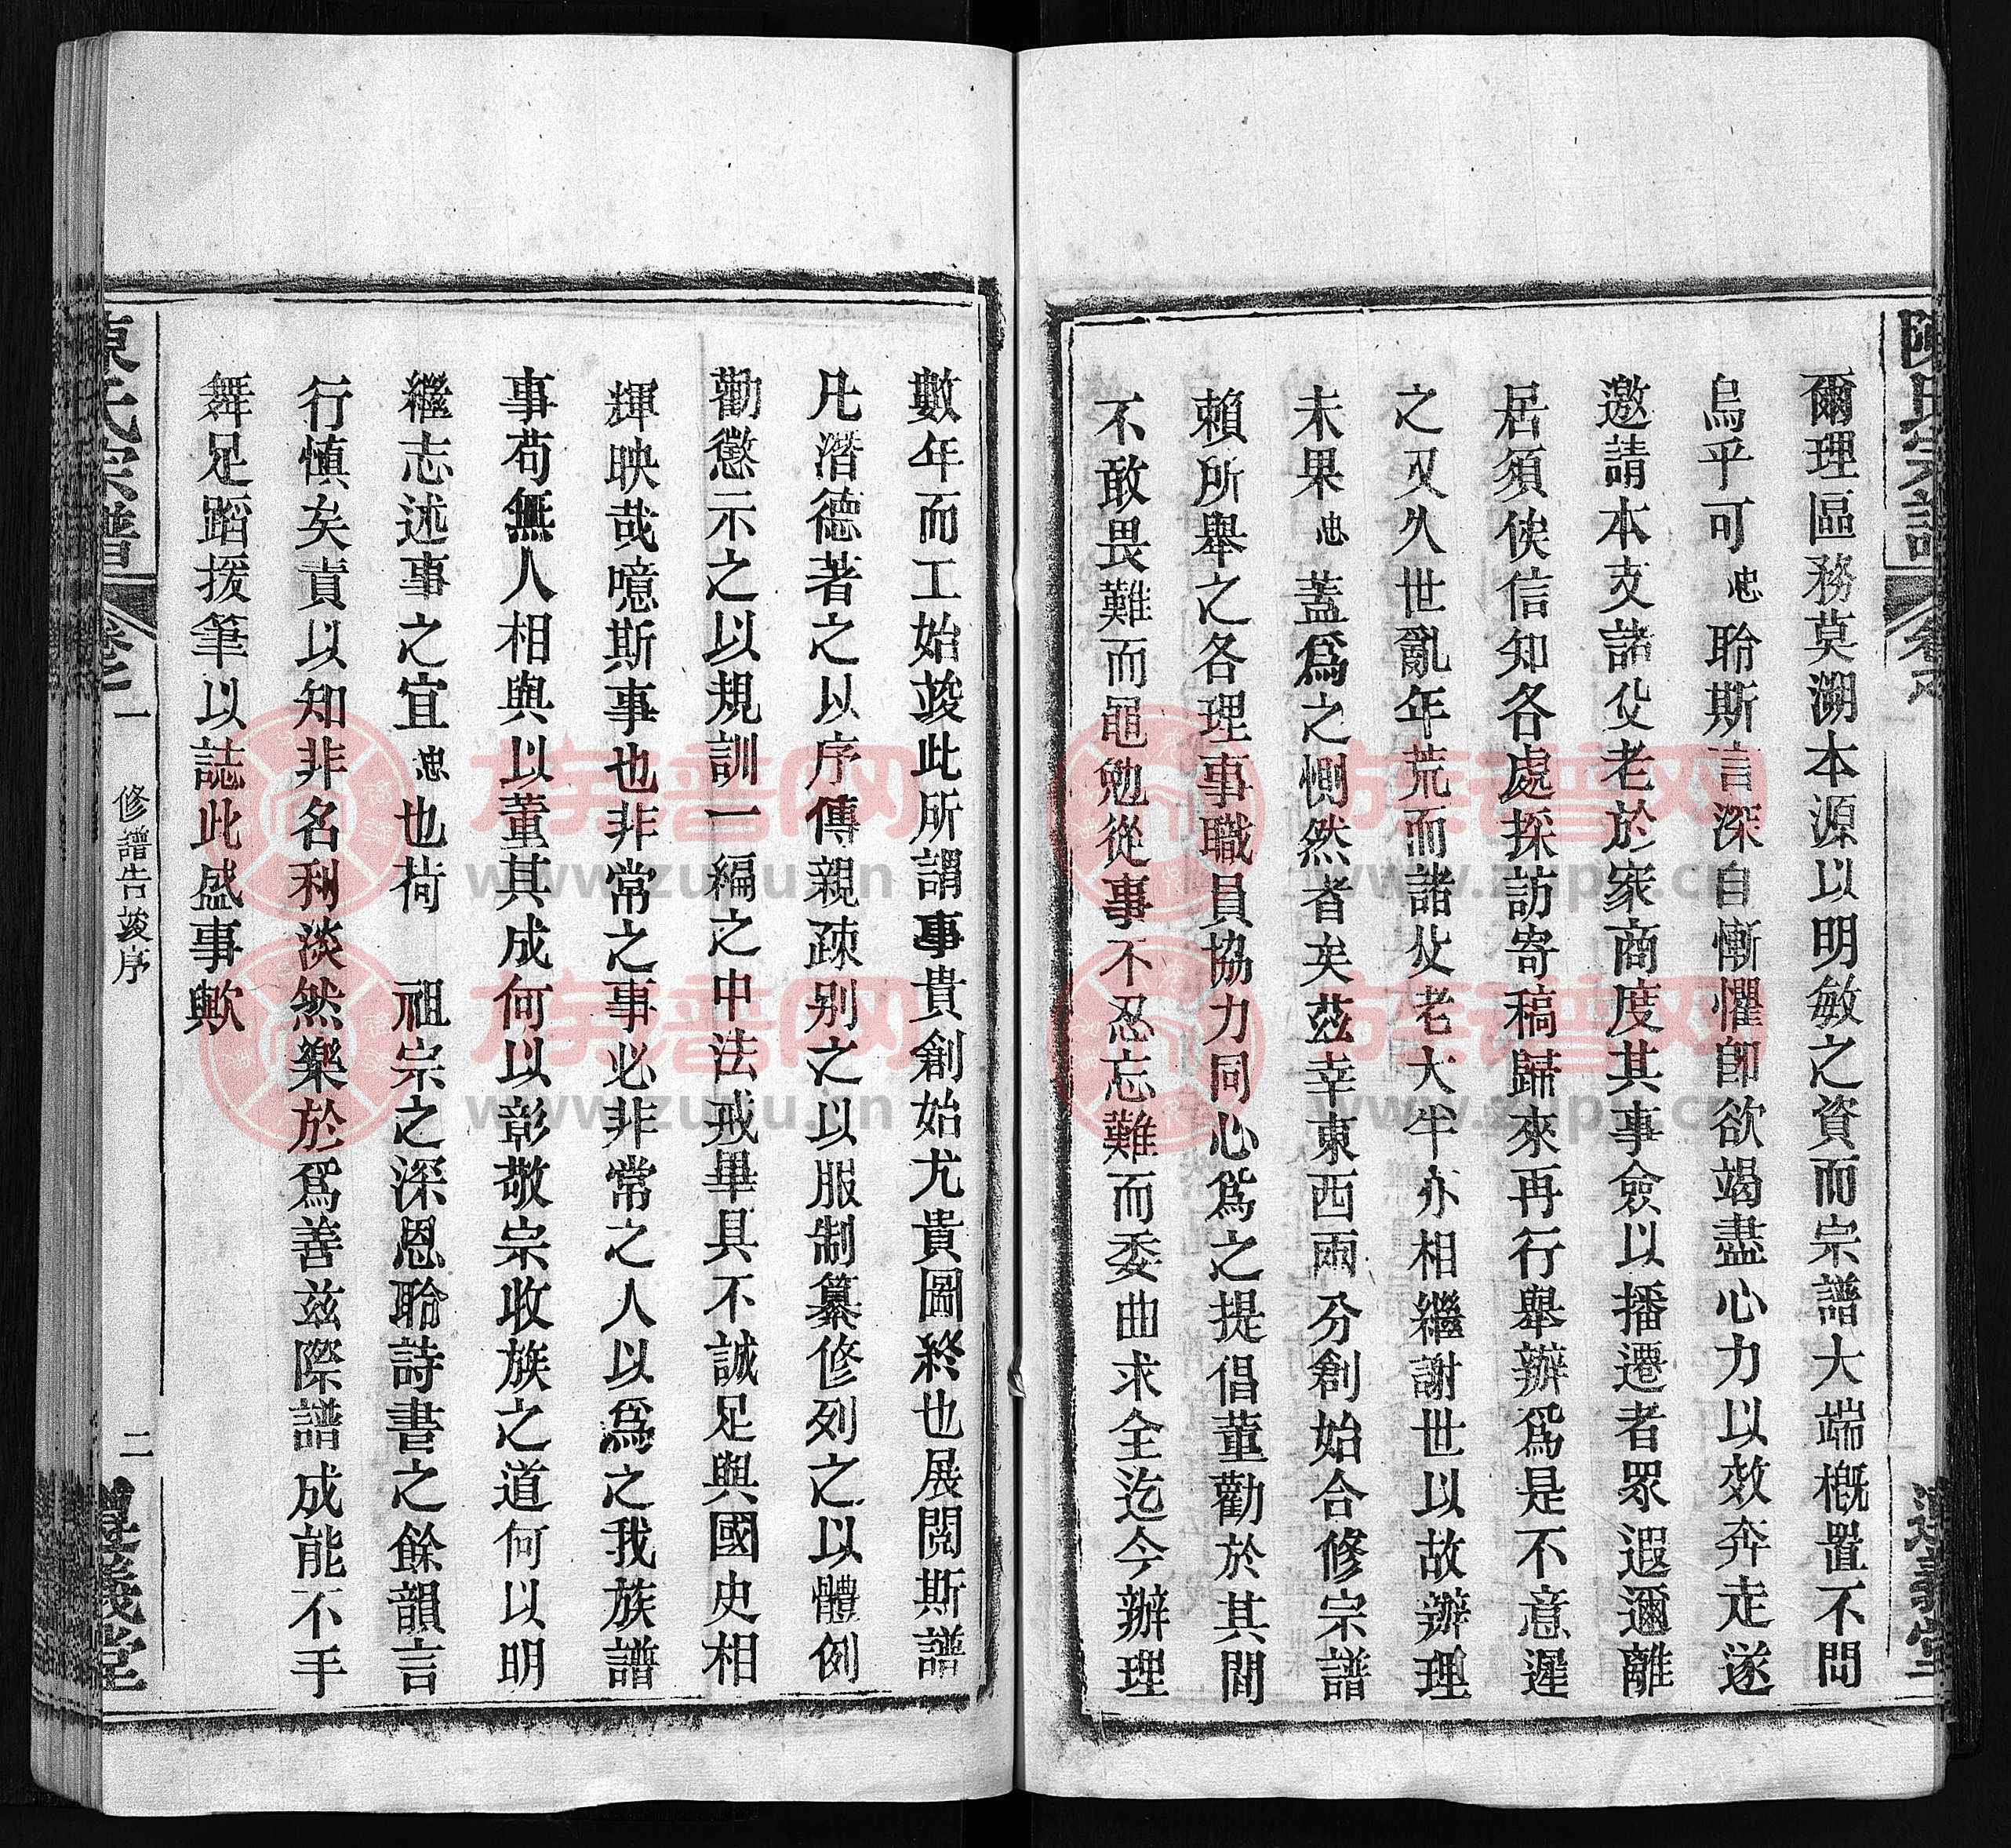 陳氏宗譜
卷之
義堂
爾理區務莫溯本源以明敏之資而宗譜大端槪置不問
烏乎可忠聆斯言深自慚懼卽欲竭盡心力以效奔走遂
邀請本支諸父老於家商度其事僉以播遷者眾遐邇離
居須俟信知各處採訪寄稿歸來再行舉辦爲是不意遲
之又久世亂年荒而諸父老大半亦相繼謝世以故辦理
未果忠蓋爲之惻然者矣茲幸東西兩分創始合修宗譜
賴所舉之各理事職員協力同心爲之提倡董勸於其間
不敢畏難而黽勉從事不忍忘難而委曲求全迄今辦理
數年而工始竣此所謂事貴創始尤貴圖終也展閱斯譜
凡潛德著之以序傳親疎別之以服制纂修列之以體例
勸懲示之以規訓一編之中法戒畢具不誠足與國史相
輝映哉噫斯事也非常之事必非常之人以爲之我族譜
事苟無人相與以董其成何以彰敬宗收族之道何以明
繼志述事之宜忠也荷　祖宗之深恩聆詩書之餘韻言
行慎矣責以知非名利淡然樂於爲善兹際譜成能不手
舞足蹈援筆以誌此盛事歟
陳氏宗譜
卷之一
修譜告竣序
二
義堂
族譜网
www.zupu.cn
族譜网
www.zupu.cn
族譜网
www.zupu.cn
族譜网
www.zupu.cn